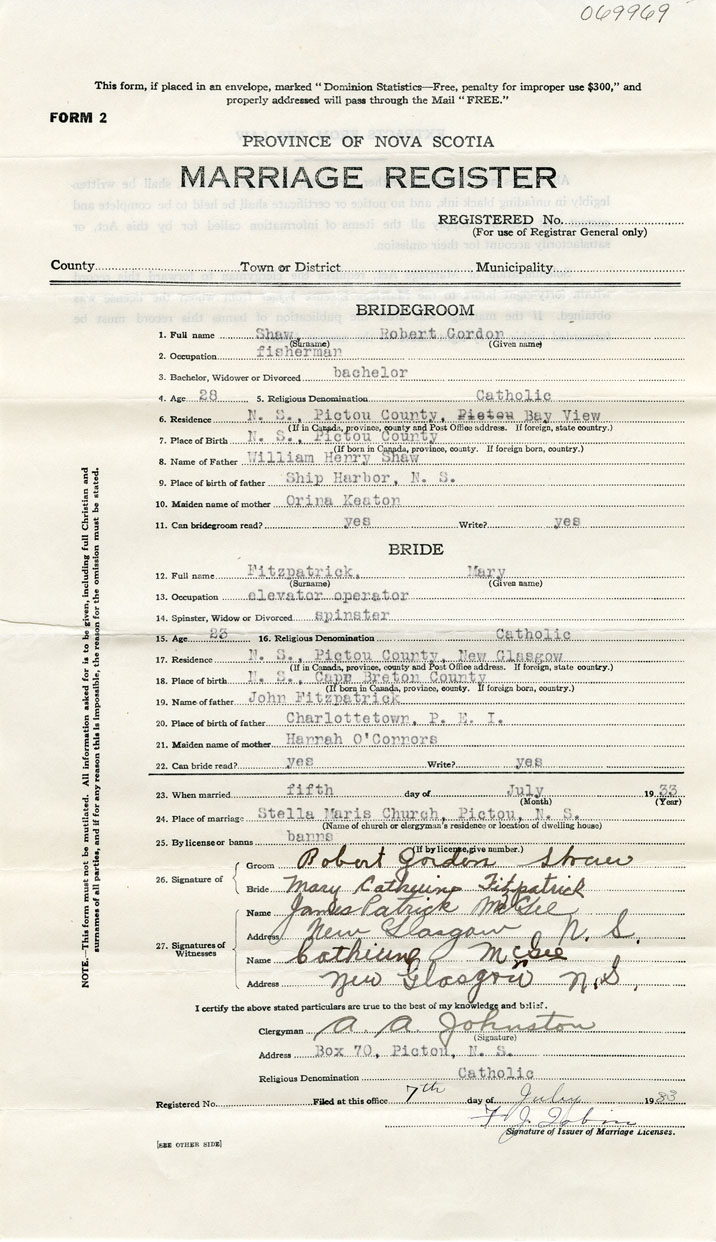 069969
This form, if placed in an envelope, marked "Dominion Statistics—Free, penalty for improper use $300," and
properly addressed will pass through the Mail "FREE."
FORM 2
PROVINCE OF NOVA SCOTIA
MARRIAGE REGISTER
REGISTERED No.
(For use of Registrar General only)
County Town or District Municipality
BRIDEGROOM
1. Full name Shaw, Robert Gordon
(Surname) (Given name)
2. Occupation fisherman
3. Bachelor, Widower or Divorced bachelor
4. Age 28 5. Religious Denomination Catholic
6. Residence N. S., Pictou County, Pictou Bay View
(If in Canada, province, county and Post Office address. If foreign, state country.)
7. Place of Birth N. S., Pictou County
(If born in Canada, province, county. If foreign born, country.)
8. Name of Father William Henry Shaw
9. Place of birth of father Ship Harbor, N. S.
10. Maiden name of mother Orina Keaton
11. Can bridegroom read? yes Write? yes
BRIDE
12. Full name Fitzpatrick, Mary
(Surname) (Given name)
13. Occupation elevator operator
14. Spinster, Widow or Divorced spinster
15. Age 23 16. Religious Denomination Catholic
17. Residence N. S., Pictou County, New Glasgow
(If in Canada, province, county and Post Office address. If foreign, state country.)
18. Place of birth N. S., Cape Breton County
(If born in Canada, province, county. If foreign born, country.)
19. Name of father John Fitzpatrick
20. Place of birth of father Charlottetown, P. E. I.
21. Maiden name of mother Hannah O'Connors
22. Can bride read? yes Write? yes
23. When married fifth day of July 19 33
(Month) (Year)
24. Place of marriage Stella Maris Church, Pictou, N. S.
(Name of church or clergyman's residence or location of dwelling house)
25. By license or banns banns
(If by license, give number.)
26. Signature of
Groom Robert Gordon Shaw
Bride Mary Catherine Fitzpatrick
27. Signatures of Witnesses
Name James Patrick McGee
Address New Glasgow N. S.
Name Catherine McGee
Address New Glasgow N.S.
I certify the above stated particulars are true to the best of my knowledge and belief.
Clergyman A. A. Johnston
(Signature)
Address Box 70, Pictou, N. S.
Religious Denomination Catholic
Registered No. Filed at this office 7th day of July 19 33
F J. Tobin
Signature of Issuer of Marriage Licenses.
[SEE OTHER SIDE]
NOTE.—This form must not be mutilated. All information asked for is to be given, including full Christian and
surnames of all parties, and if for any reason this is impossible, the reason for the omission must be stated.